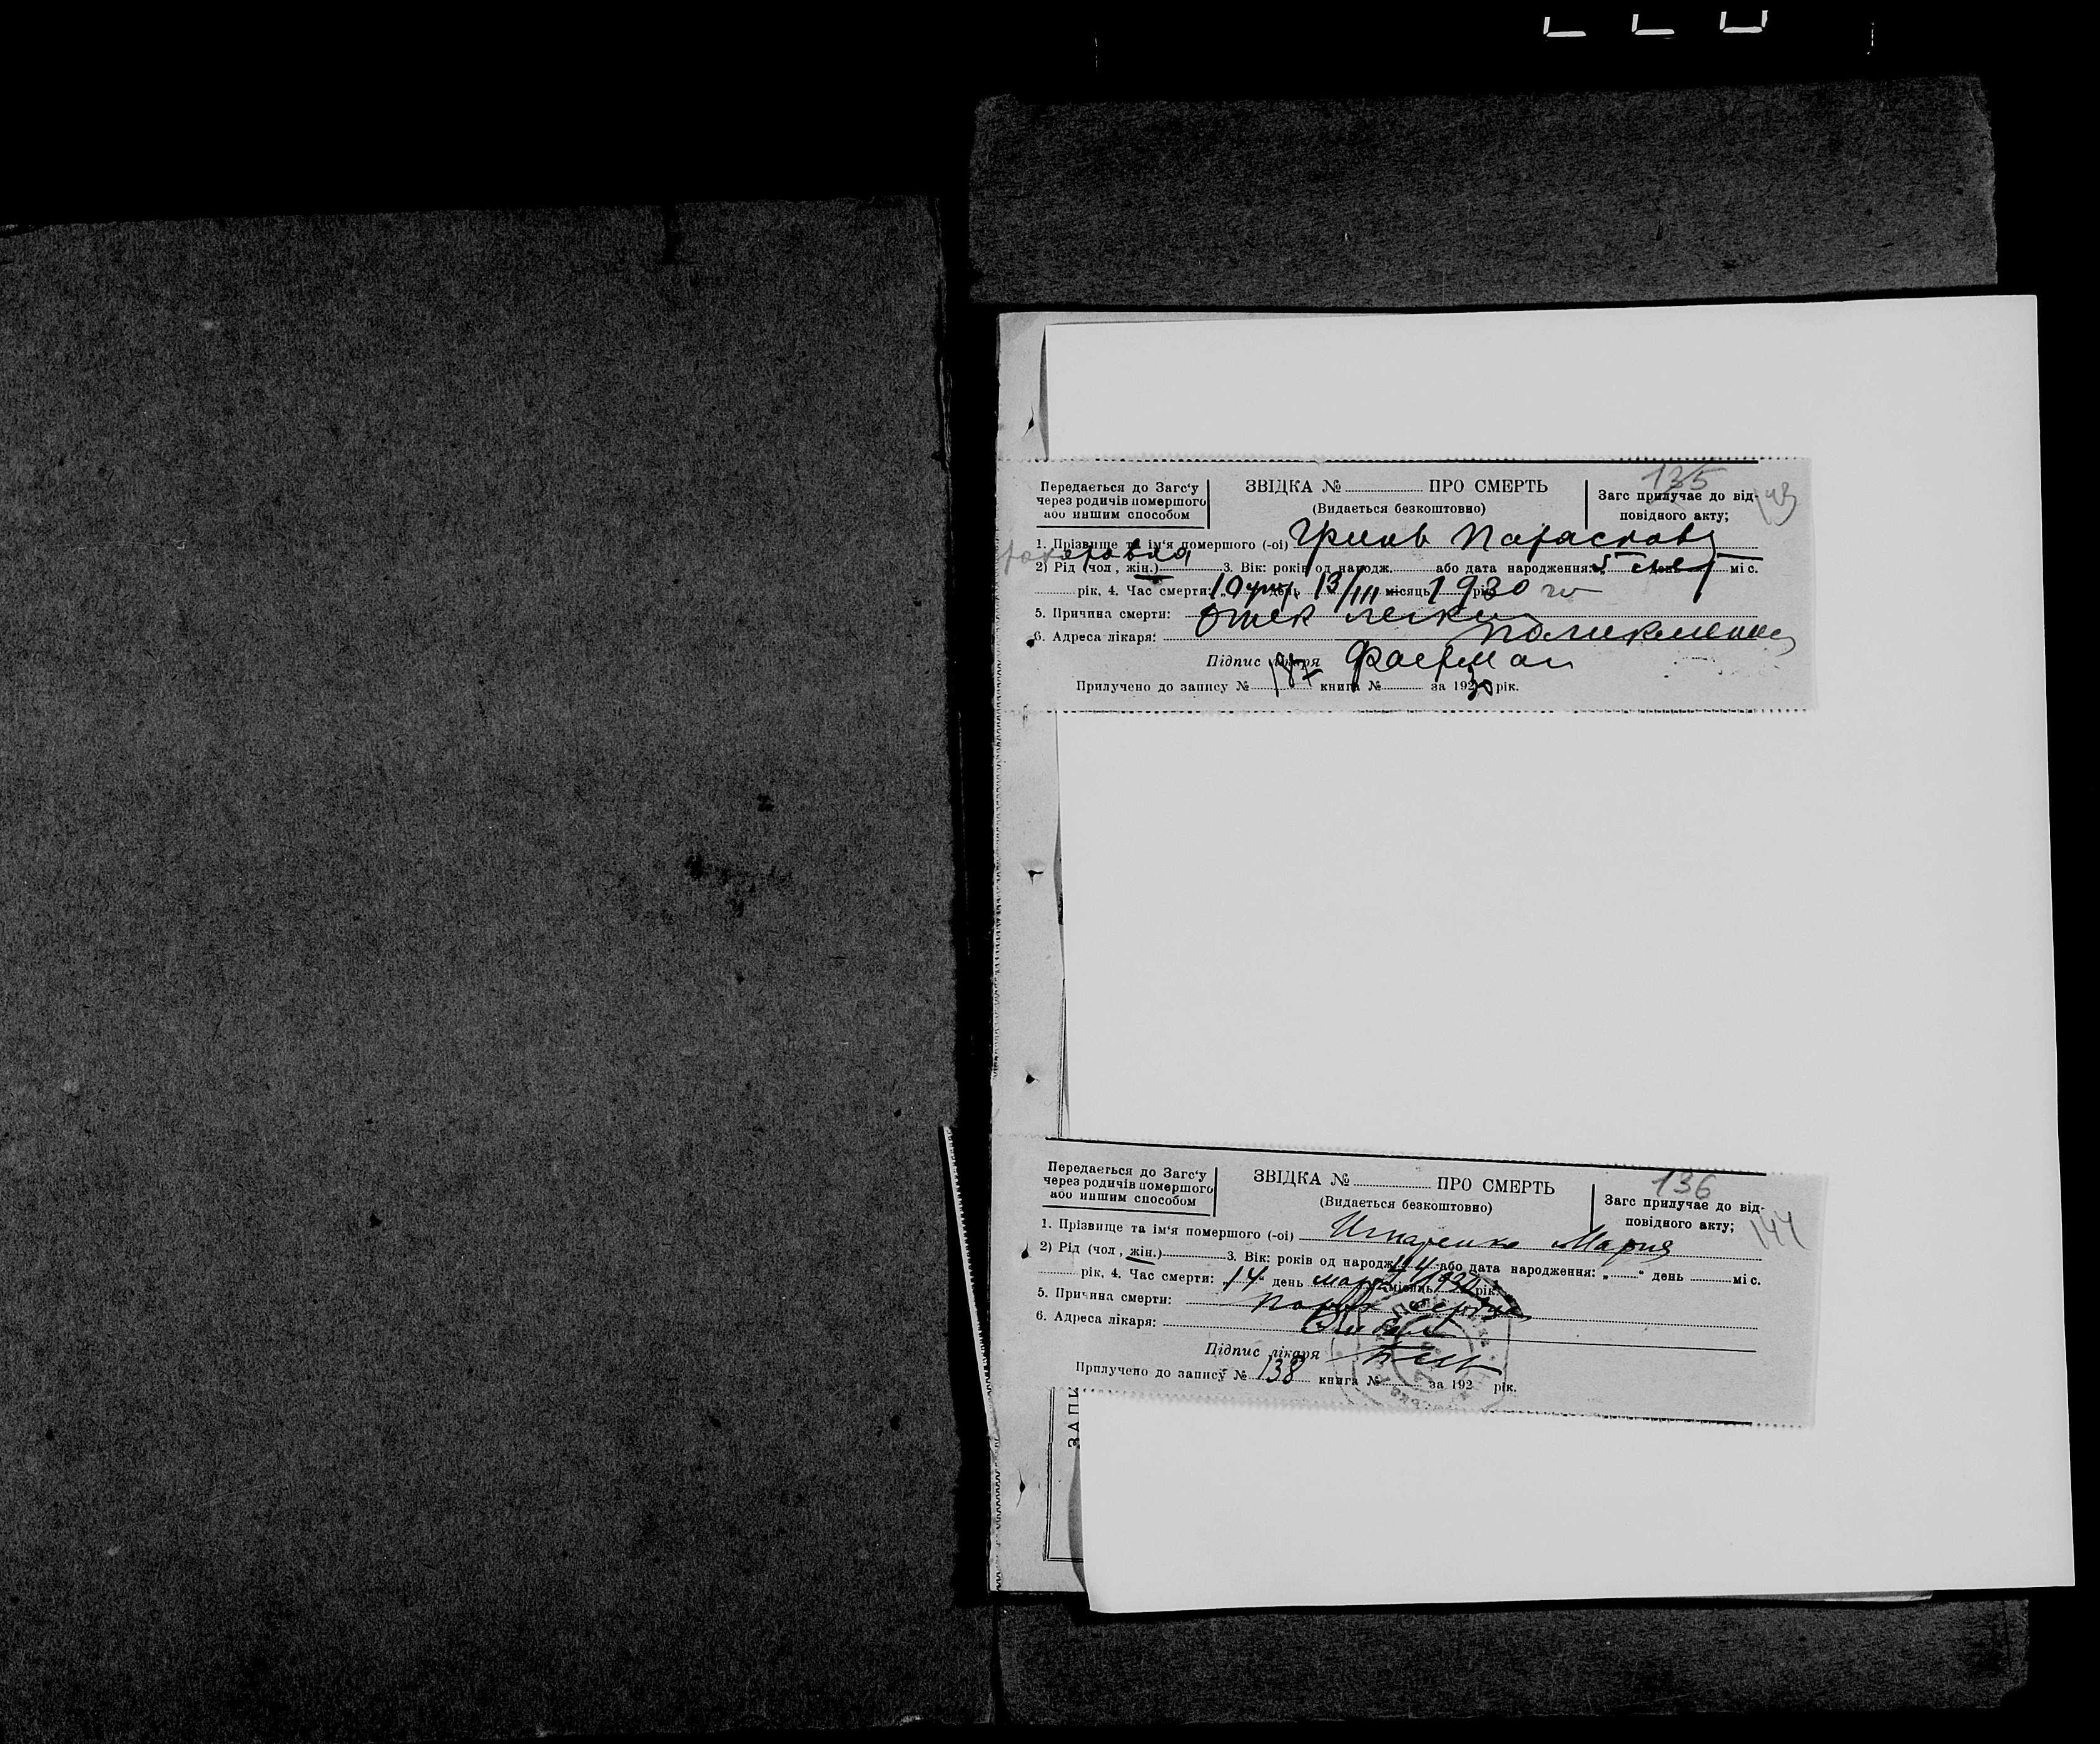 135
Передається до Загс'у
через родичів помершого
або иншим способом
ЗВІДКА № ПРО СМЕРТЬ
(Видається безкоштовно)
Загс прилучає до від-
повідного акту;
1. Прізвище та ім'я помершого (-ої) Гринь
2) Рід (чол, жін.) 3. Вік: років од народж. або дата народження: „ день міс.
рік, 4. Час смерти: 10 день 13/III місяць 1930 рік
5. Причина смерти: Отек легких
6. Адреса лікаря:
Підпис лікаря
Прилучено до запису № 187 книга № за 1930 рік.
136
Передається до Загс'у
через родичів помершого
або иншим способом
ЗВІДКА № ПРО СМЕРТЬ
(Видається безкоштовно)
Загс прилучає до від-
повідного акту;
144
1. Прізвище та ім'я помершого (-ої) Мария
2) Рід (чол, жін.) 3. Вік: років од народж. 44 або дата народження: „ “ день міс.
рік, 4. Час смерти: „14“ день марта місяць 1930 рік.
5. Причина смерти: сердца
6. Адреса лікаря:
Підпис лікаря
Прилучено до запису № 138 книга № за 192 рік.
ЗАПИ